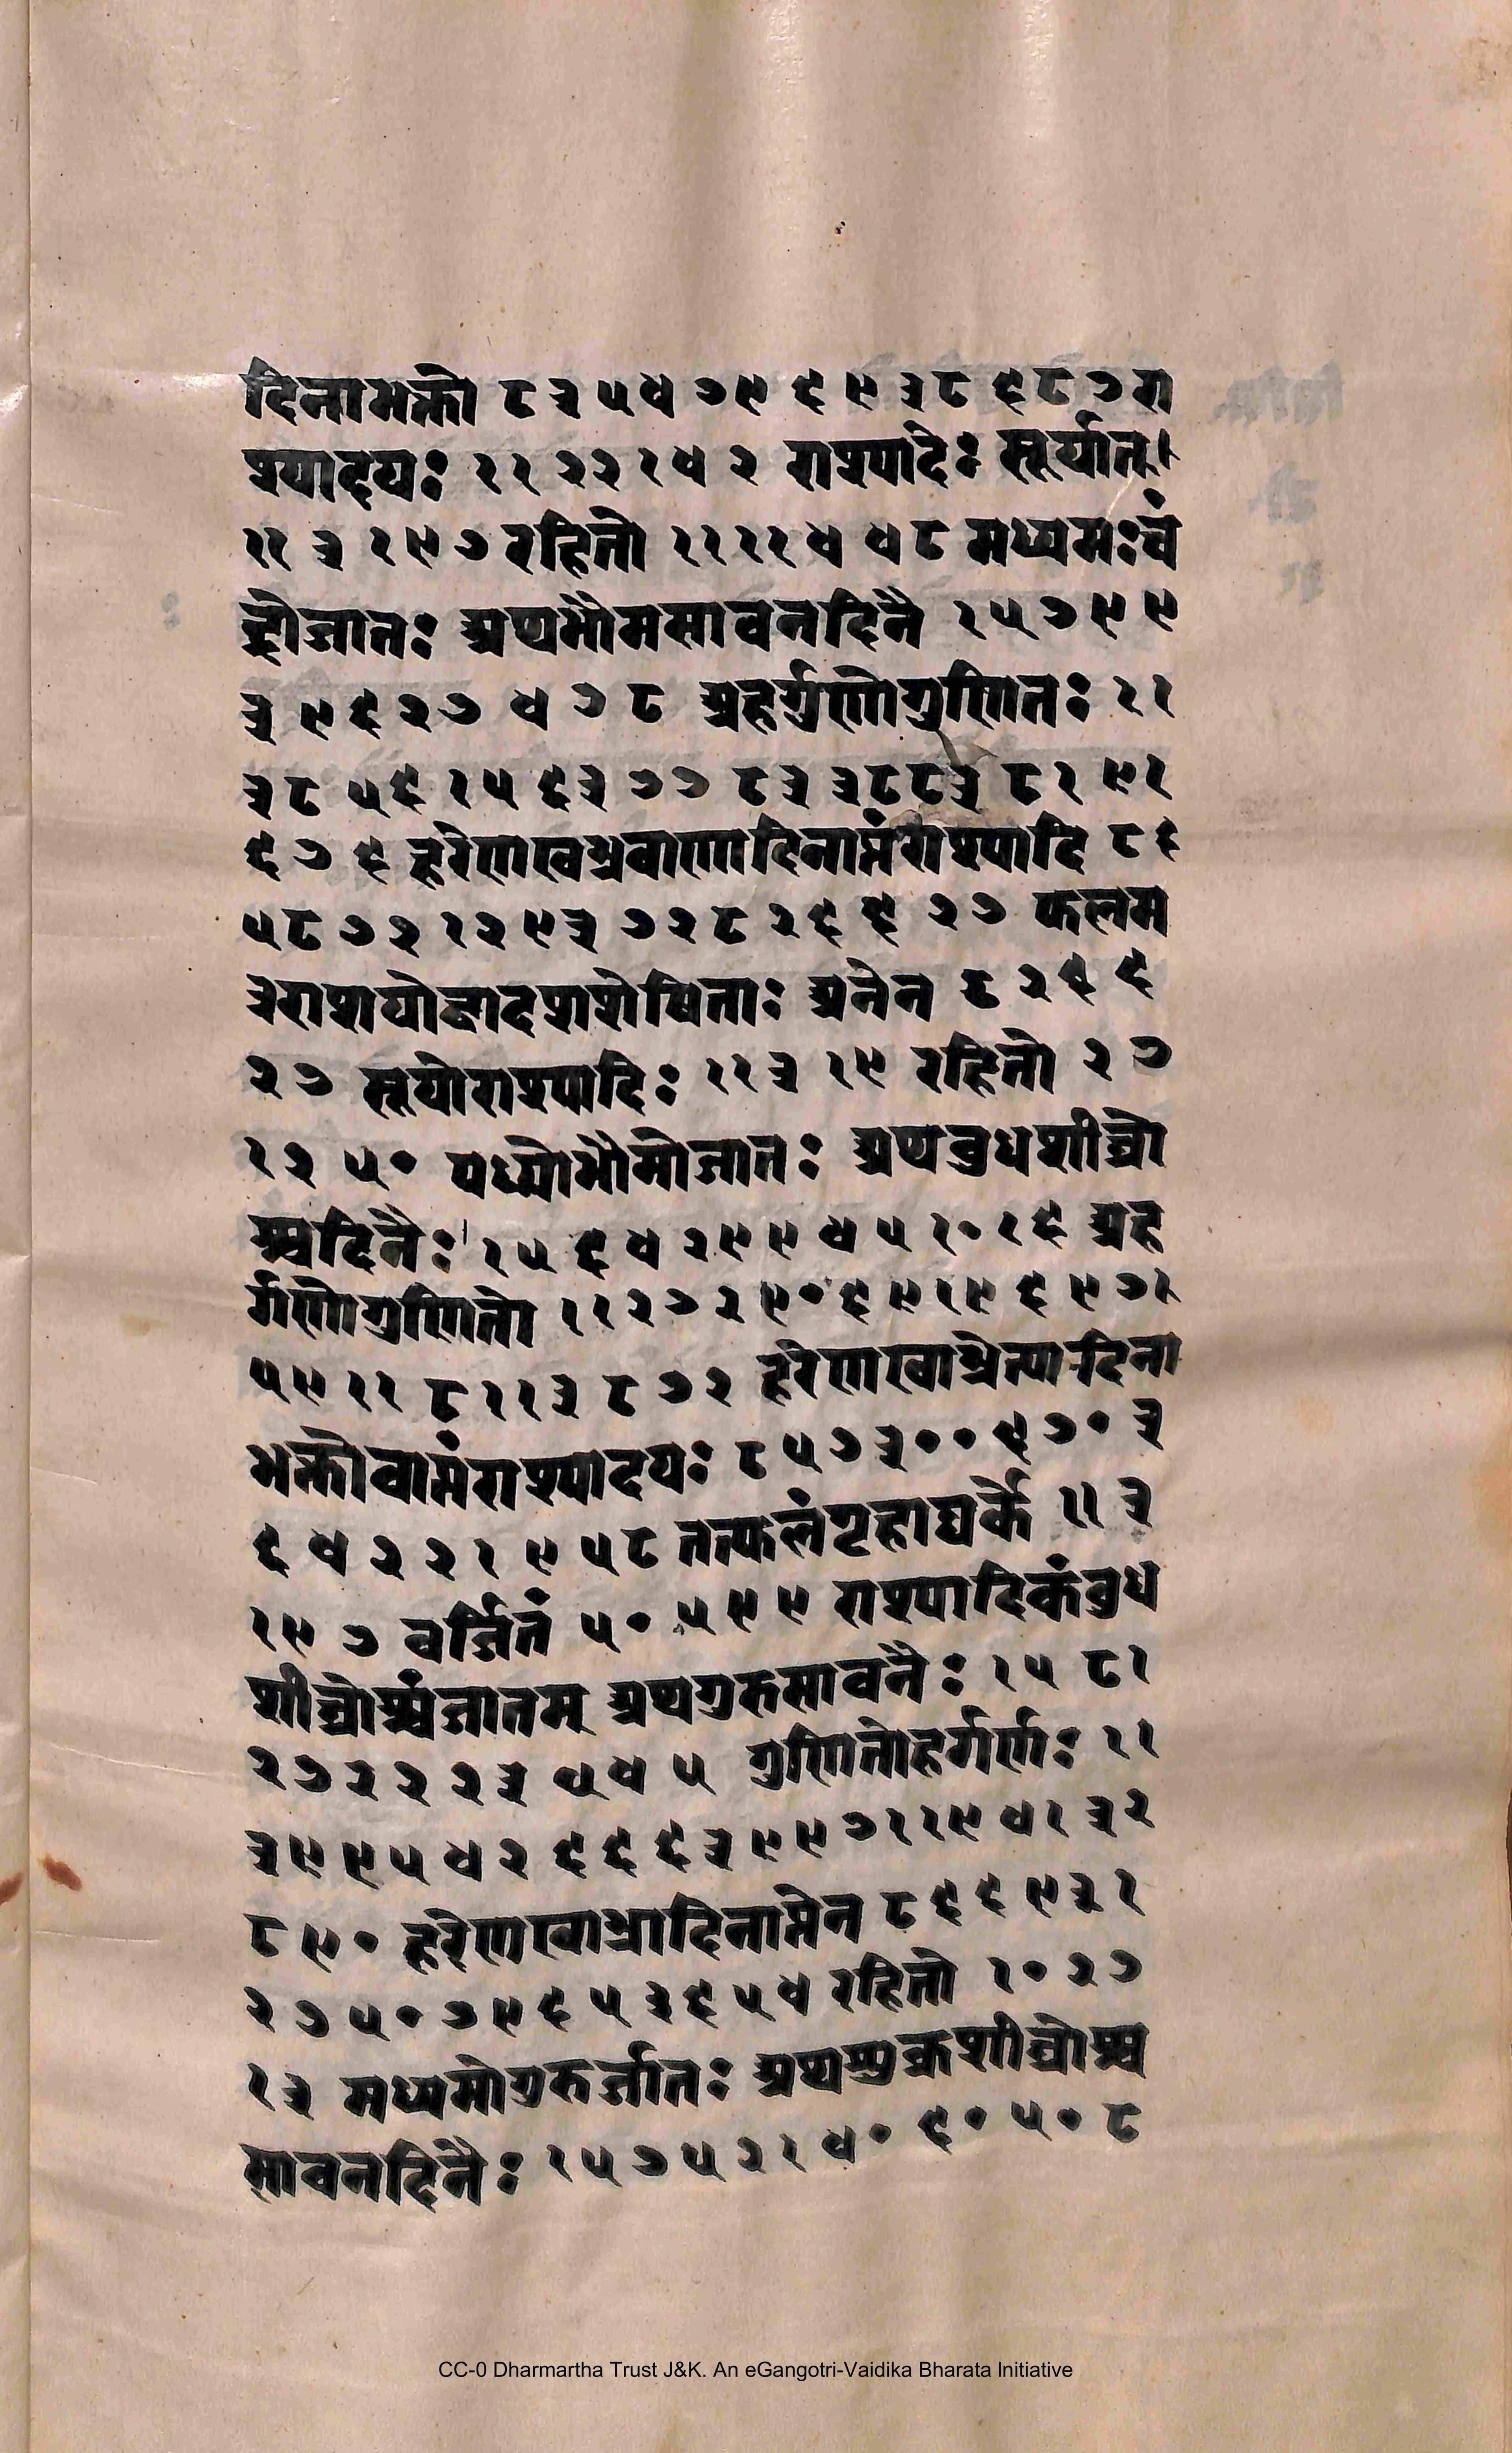 दिनाभक्तो ८ ३ ५ ४ ७ ९ ६ ९ ३ ८ ६ ८ ७ रा
श्यादयः १ १ २ २ १ ४ २ राश्यादेः सूर्यात्।
१ १ ३ १ ९ ७ रहितो १ १ १ १ ४ ४ ८ मध्यमः चं
द्रोजातः अथभौमसावनदिनै १ ५ ७ ९ ९
३ ९ ६ २ ७ ४ ७ ८ अहर्गणोगुणितः १ १
३ ८ ५ ६ १ ५ ६ ३ ७ ७ ८ ३ ३ ८ ८ ३ ८ १ ९ १
६ ७ ६ हरेणखाभ्रबाणादिनाप्तंराश्यादि ८ ६
५ ८ ७ २ १ २ ९ ३ ७ २ ८ २ ६ ६ २ ७ फलम
त्रराशयोद्वादशशेषिताः अनेन ८ २ ६ ६
२ ७ सूर्योराश्यादिः १ १ ३ १ ९ रहितो २ ७
१ २ ५ ० मध्योभौमोजातः अथबुधशीघ्रो
च्चदिनैः १ ५ ६ ४ २ ९ ९ ४ ५ १ ० १ ६ अह
र्गणोगुणितो १ १ २ ७ २ ९ ० ६ ९ १ ९ ६ ९ ७ १
५ ९ १ १ ८ १ १ ३ ८ ७ २ हरेणखाभ्रेत्यादिना
भक्तोवाप्तंराश्यादयः ८ ५ ७ ३ ० ० ६ ७ ० ३
६ ४ २ २ १ ९ ५ ८ तत्फलंगृहाद्यर्के ११ ३
१ ९ ७ वर्जितं ५ ० ५ ९ ९ राश्यादिकंबुध
शीघ्रोच्चंजातम् अथगुरुसावनैः १ ५ ८ १
२ ७ २ २ २ ३ ५ ४ ५ गुणितोहर्गणः १ १
३ ९ ९ ५ ४ २ ६ ६ ६ ३ ९ ९ ७ १ १ ९ ४ १ ३ २
८ ९ ० हरेणखाभ्रादिनाप्तेन ८ ६ ६ ९ ३ १
२ ७ ५ ० ७ ९ ६ ५ ३ ६ ५ ४ रहितो १ ० २ ७
१ ३ मध्यमोगुरुर्जातः अथशुक्रशीघ्रोच्च
सावनदिनैः १ ५ ७ ५ २ १ ४ ० ६ ० ५ ० ८
CC-0 Dharmartha Trust J&K. An eGangotri-Vaidika Bharata Initiative